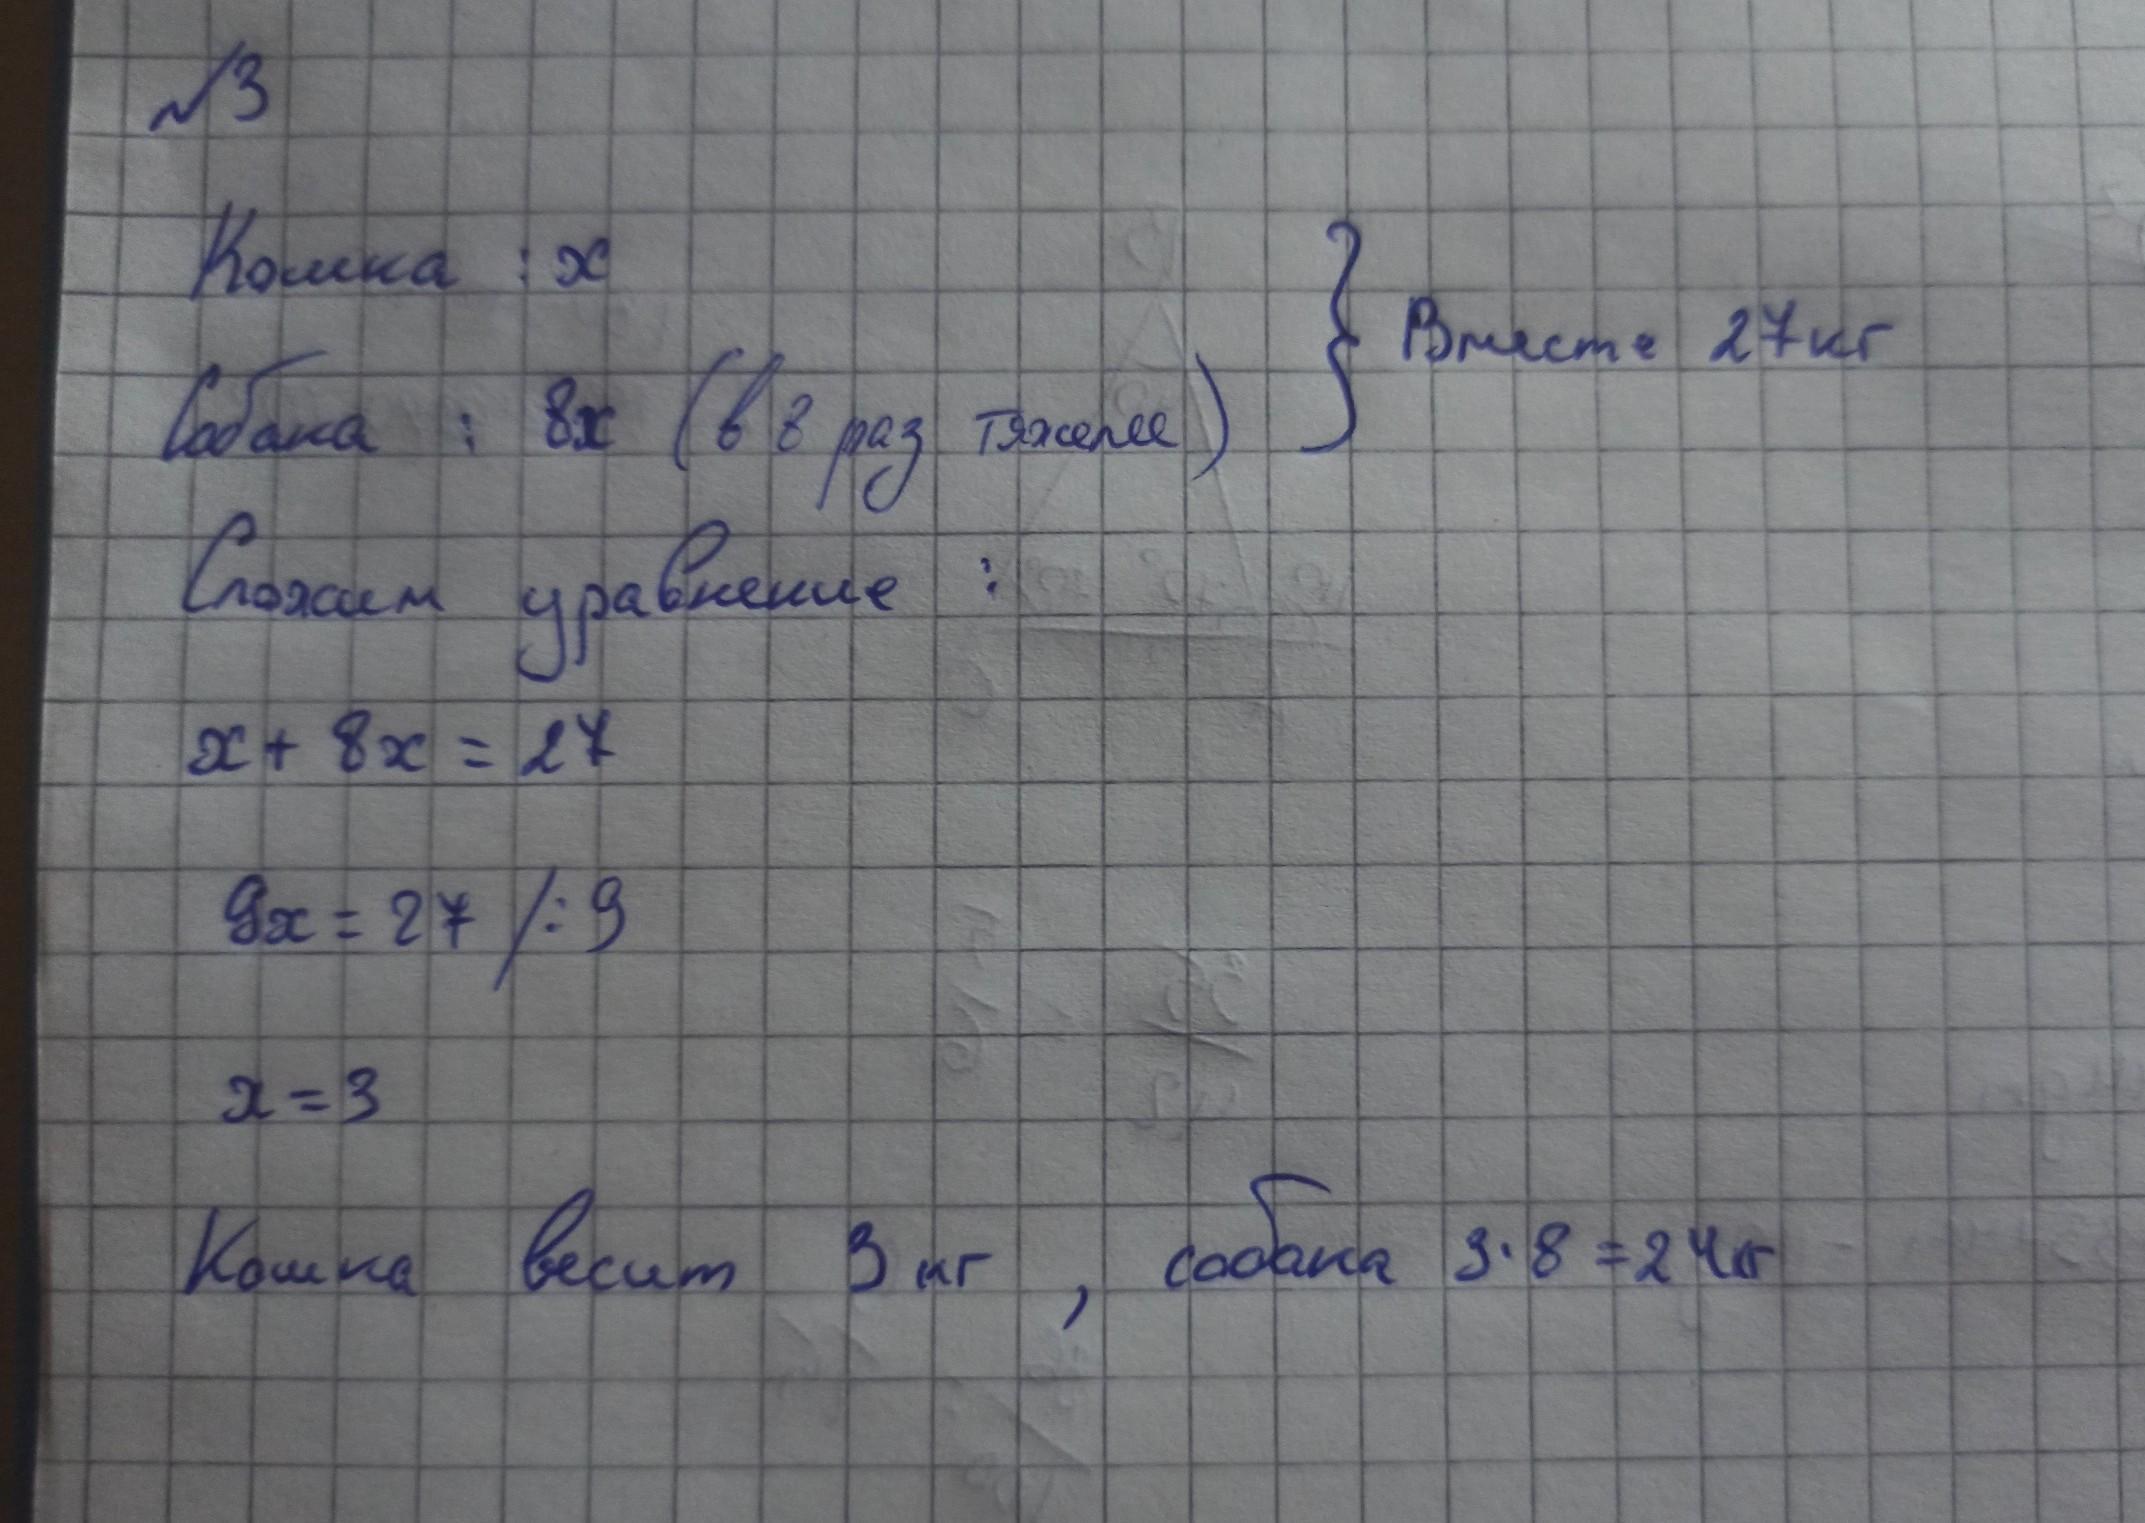 №3
Кошка : x
Собака : 8x (в 8 раз тяжелее) } Вместе 27кг
Сложим уравнение :
x + 8x = 27
9x = 27 /: 9
x = 3
Кошка весит 3 кг , собака 3·8 = 24кг